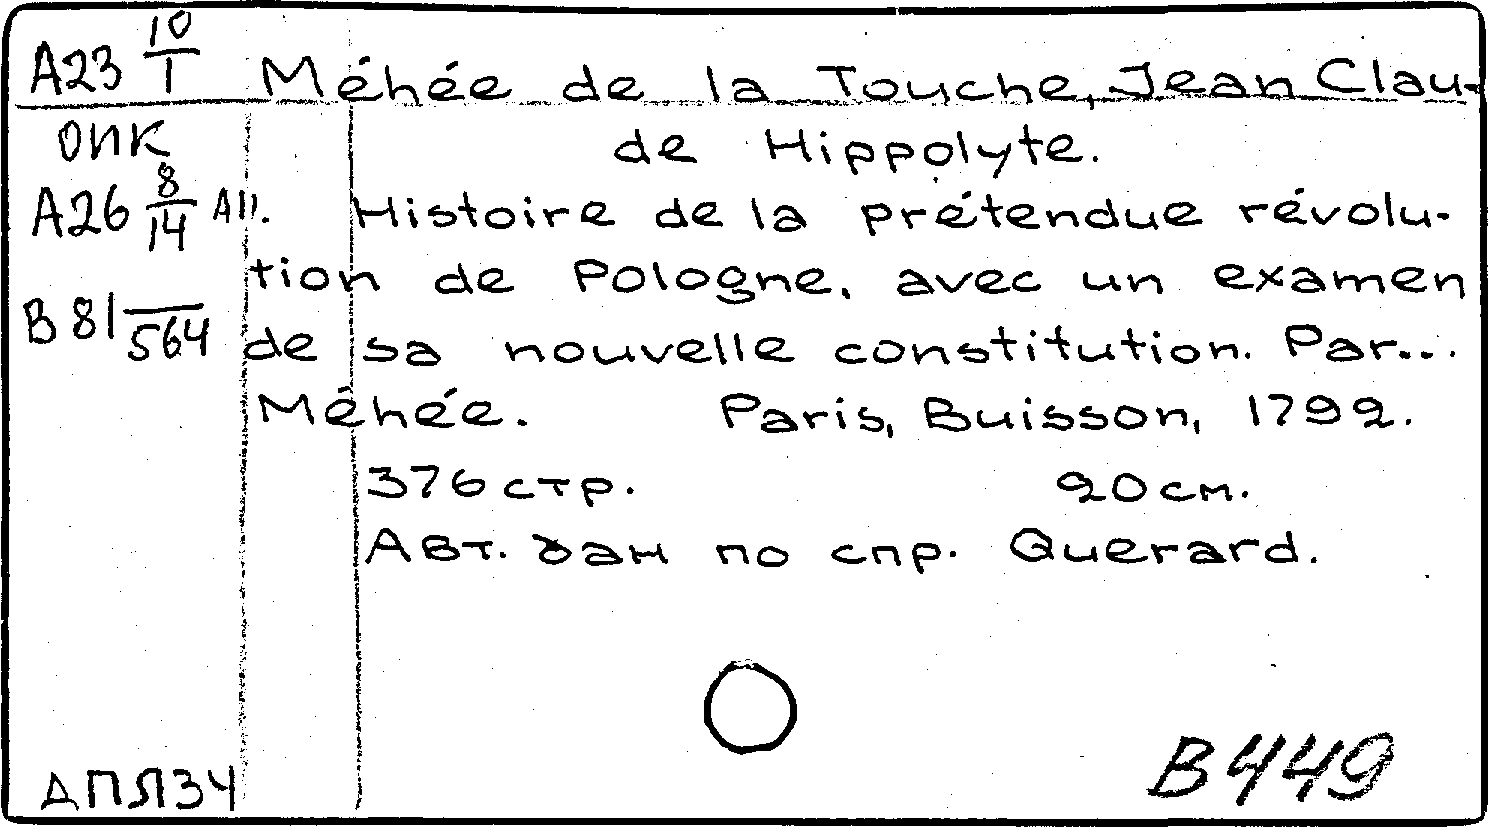 A23 10/1 Méhée de la Touche, Jean Clau-
de Hippolyte.
ОИК
A26 8/14 All. Histoire de la prétendue révolu-
tion de Pologne, avec un examen
B 81/564 de sa nouvelle constitution. Par...
Méhée. Paris, Buisson, 1792.
376 стр. 20 см.
Авт. дан по спр. Querard.
B449
ДПЛ34